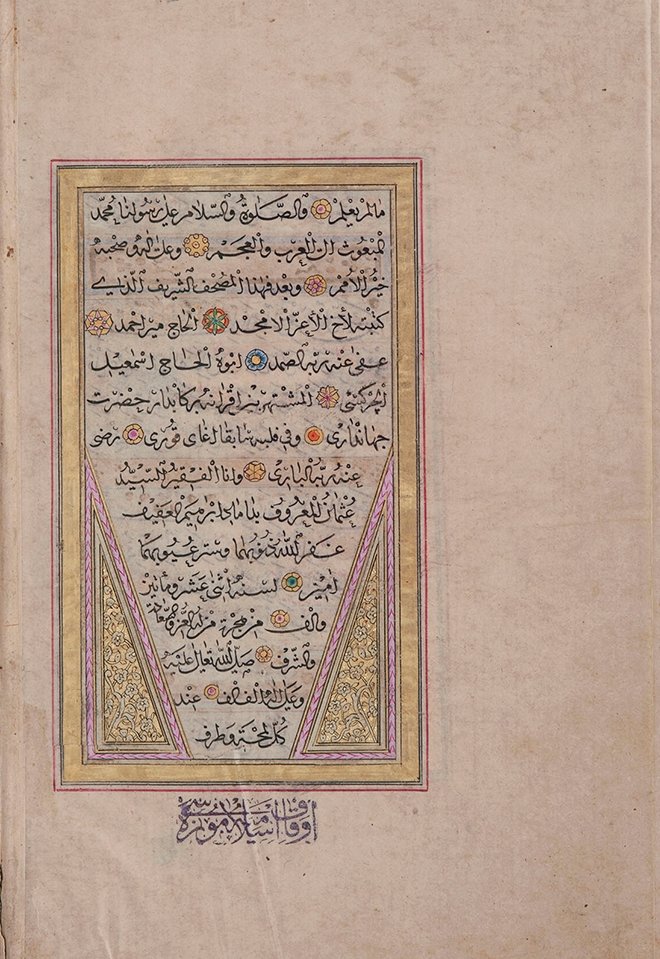 مالم يعلم والصلوة والسلام على رسولنا محمد
المبعوث الى العرب والعجم وعلى اله وصحبه
خير الأمم وبعد فهذا المصحف الشريف الذي
كتبته لأخ الأعز الامجد الحاج مير احمد
عفى عنه ربه الصمد ابوه الحاج اسمعيل
الچركسى المشتهر بين اقرانه بركابدار حضرت
جهانداري وفي سابقا اغاي قوري رضى
عنه ربه البارى وانا الفقير السيد
عثمان المعروف بداماد ابراهيم العفيف
غفر الله ذنوبهما وستر عيوبهما
امين لسنة اثنى عشر ومأتين
والف من هجرة من له العز والسعادة
والشرف صلى الله تعالى عليه
وعلى اله الف الف عند
كل لمحة وطرف
اوقاف اسلاميه موزه سى